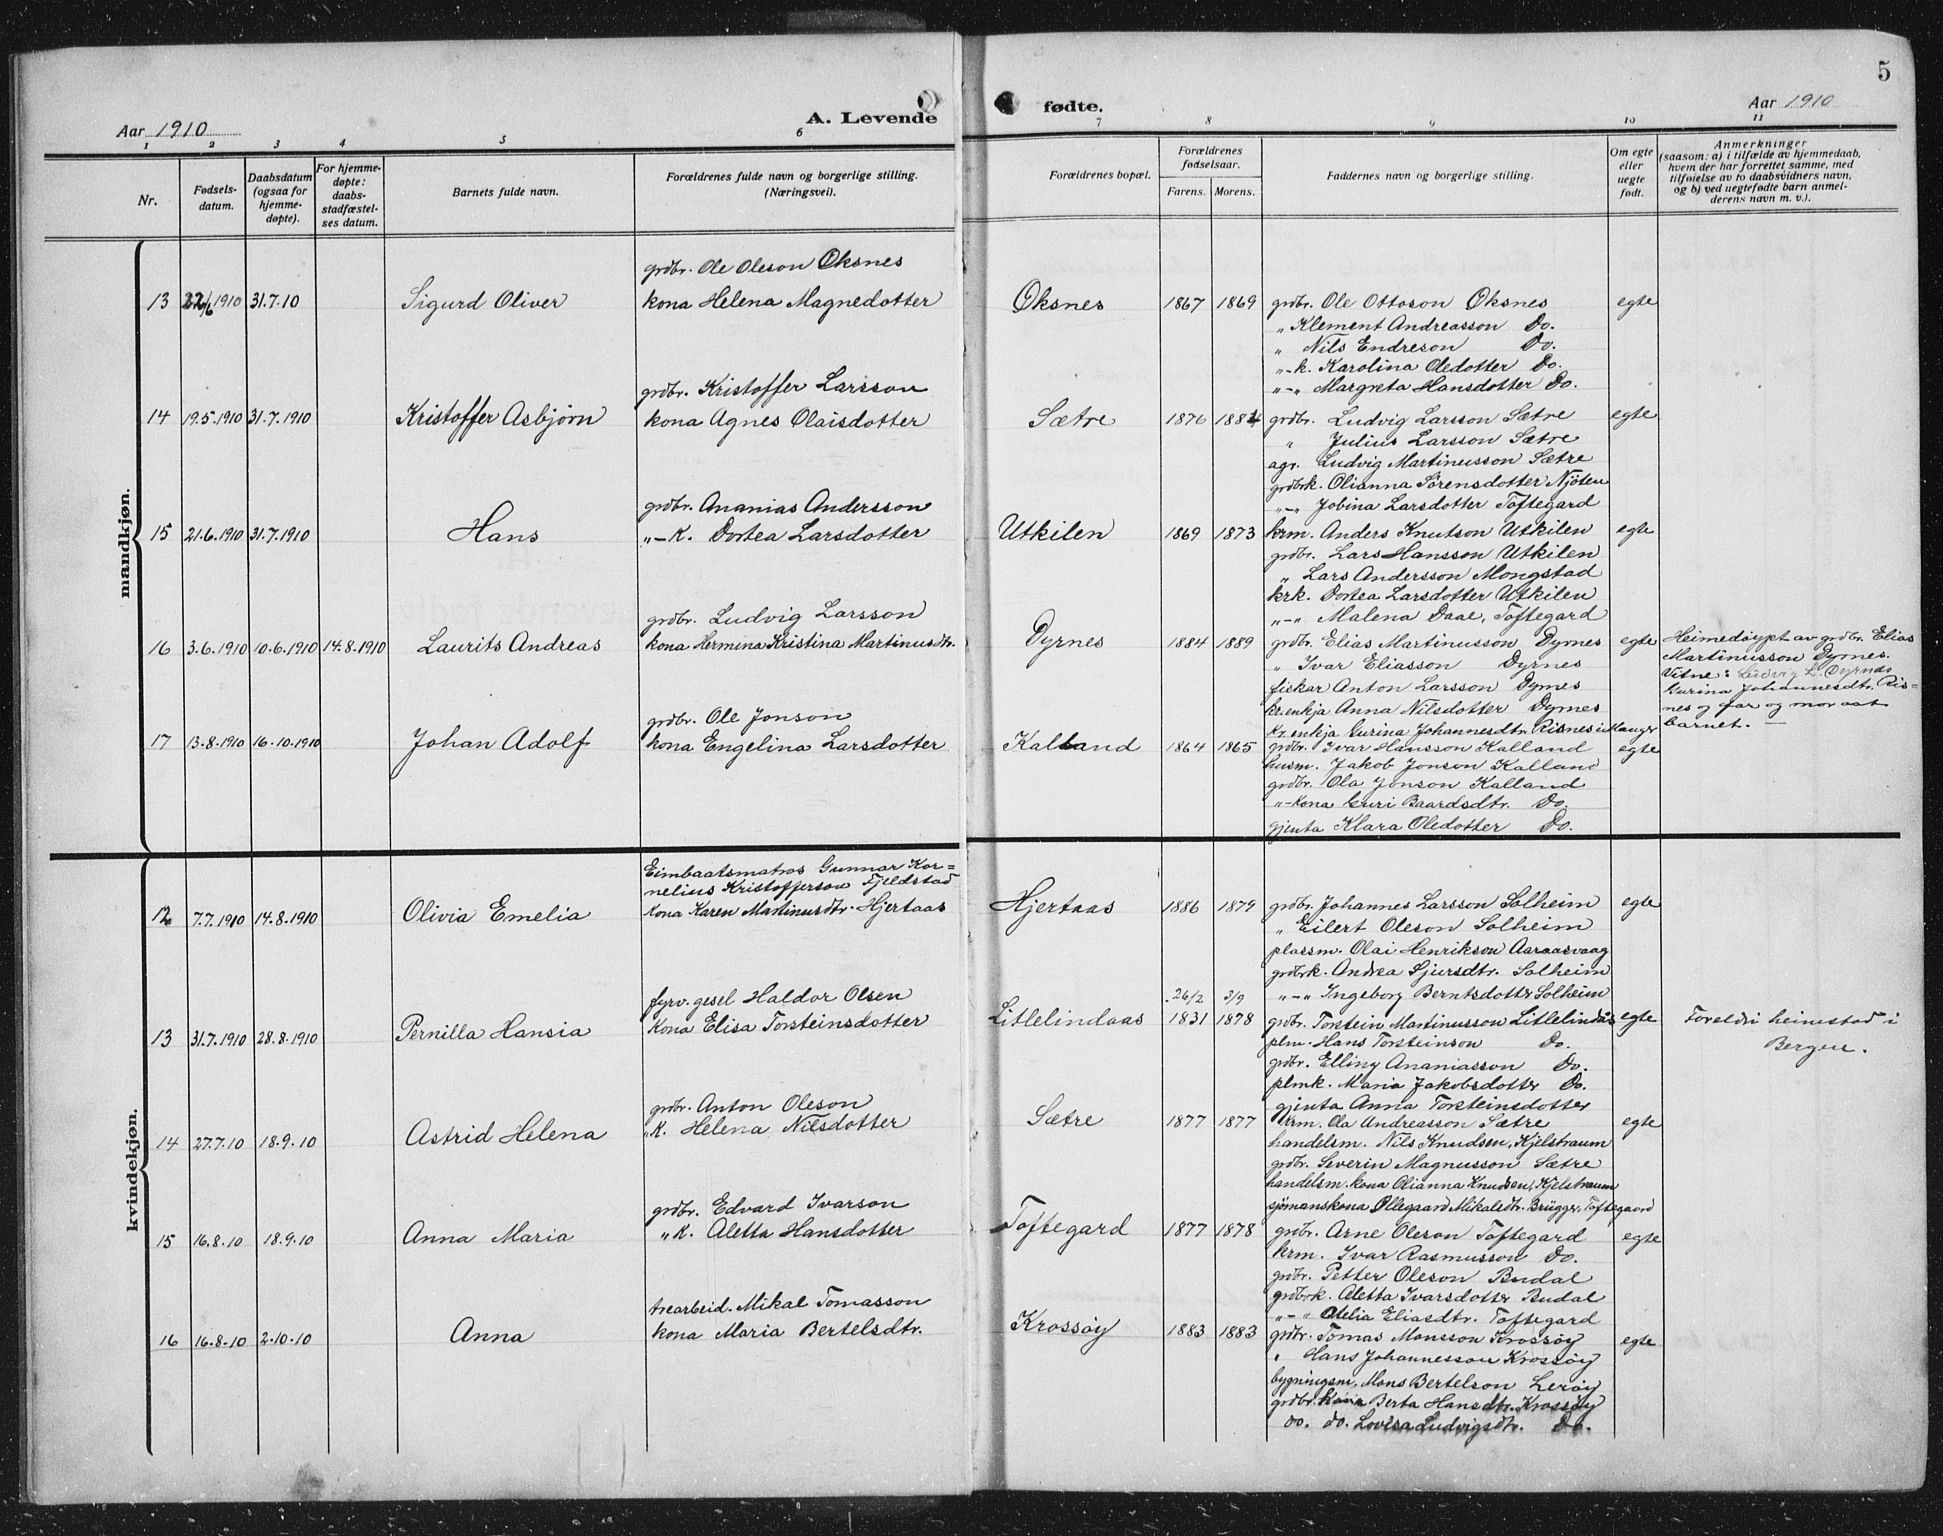 5
Aar 1910
A. Levende
fødte.
Aar 1910
1 2 3 4 5 6 7 8 9 10 11
Nr.
Fødsels-
datum.
Daabsdatum
(ogsaa for
hjemme-
døpte).
For hjemme-
døpte:
daabs-
stadfæstel-
ses datum.
Barnets fulde navn.
Forældrenes fulde navn og borgerlige stilling.
(Næringsvei).
Forældrenes bopæl.
Forældrenes
fødselsaar.
Farens. Morens.
Faddernes navn og borgerlige stilling.
Om egte
eller
uegte
født.
Anmerkninger
(saasom: a) i tilfælde av hjemmedaab,
hvem der har forrettet samme, med
tilføielse av to daabsvidners navn,
og b) ved uegtefødte barn anmel-
derens navn m. v.).
mandkjøn.
grdbr. Ole Oleson Oksnes
13 22/6 1910 31.7.10 Sigurd Oliver kona Helena Magnedotter Oksnes 1867 1869 grdbr. Ole Ottoson Oksnes egte
„ Klement Andreasson Do.
„ Nils Endreson Do.
„-k. Karolina Oledotter Do.
„-„ Margreta Hansdotter Do.
grdbr. Kristoffer Larsson
14 19.5.1910 31.7.1910 Kristoffer Asbjørn kona Agnes Olaisdotter Sætre 1876 1884 grdbr. Ludvig Larsson Sætre egte
„ Julius Larsson Sætre
agr. Ludvig Martinusson Sætre
grdbrk. Olianna Sørensdotter Njøten
„-„ Jobina Larsdotter Toftegard
grdbr. Ananias Andersson
15 21.6.1910 31.7.1910 Hans „-k. Dortea Larsdotter Utkilen 1869 1873 krm. Anders Knutson Utkilen egte
grdbr. Lars Hansson Utkilen
„ Lars Andersson Mongstad
krk. Dortea Larsdotter Utkilen
„-„ Malena Daae, Toftegard
grdbr. Ludvig Larsson
16 3.6.1910 10.6.1910 14.8.1910 Laurits Andreas kona Hermina Kristina Martinusdtr. Dyrnes 1884 1889 grdbr. Elias Martinusson Dyrnes egte Heimedøypt av grdbr. Elias
„ Ivar Eliasson Dyrnes Martinusson Dyrnes.
fiskar Anton Larsson Dyrnes Vitne: Ludvig L. Dyrnes
kr.enkja Anna Nilsdotter Dyrnes Gurina Johannesdtr. Ris=
kr.enkja Gurina Johannesdtr. Risnes i Manger nes og far og mor aat
barnet. —
grdbr. Ole Jonson
17 13.8.1910 16.10.1910 Johan Adolf kona Engelina Larsdotter Kalland 1864 1865 grdbr. Ivar Hansson Kalland egte
husm. Jakob Jonson Kalland
grdbr. Ola Jonson Kalland
„-kona Guri Baardsdtr. Do.
gjenta Klara Oledotter Do.
kvindekjøn.
Eimbaatsmatros Gunnar Kor=
nelius Kristofferson Fjeldstad
12 7.7.1910 14.8.1910 Olivia Emelia kona Karen Martinusdtr. Hjertaas Hjertaas 1886 1879 grdbr. Johannes Larsson Solheim egte
„ Eilert Oleson Solheim
plassm. Olai Henrikson Aaraasvaag
grdbrk. Andrea Sjursdtr. Solheim
„-„ Ingeborg Berntsdotter Solheim
fyrv. gesel Haldor Olsen 26/2 3/9
13 31.7.1910 28.8.1910 Pernilla Hansia kona Elisa Torsteinsdotter Litlelindaas 1831 1878 grdbr. Torstein Martinusson Litlelindås egte Foreldri heimestad i
plm. Hans Torsteinson Do. Bergen.
grdbr. Elling Ananiasson Do.
plmk. Maria Jakobsdotter Do.
gjenta Anna Torsteinsdotter
grdbr. Anton Oleson
14 27.7.10 18.9.10 Astrid Helena „k. Helena Nilsdotter Sætre 1877 1877 krm. Ola Andreasson Sætre egte
handelsm. Nils Knudsen, Kjelstraum
grdbr. Severin Magnusson Sætre
handelsm. kona Olianna Knudsen, Kjelstraum
sjømanskona Ollegaard Mikalsdtr. Brügger, Toftegaard
grdbr. Edvard Ivarson
15 16.8.10 18.9.10 Anna Maria „k. Aletta Hansdotter Toftegard 1877 1878 grdbr. Arne Oleson Toftegard egte
krm. Ivar Rasmusson Do.
grdbr. Petter Oleson Budal
grdbrk. Aletta Ivarsdotter Budal
„-„ Olelia Eliasdtr. Toftegard
trearbeid. Mikal Tomasson
16 16.8.10 2.10.10 Anna kona Maria Bertelsdtr. Krossøy 1883 1883 grdbr. Tomas Monsson Krossøy egte
„ Hans Johannesson Krossøy
bygningsm. Mons Bertelson Lerøy
grdbr. kona Berta Hansdtr. Krossøy
do. do. Lovisa Ludvigsdtr. Do.